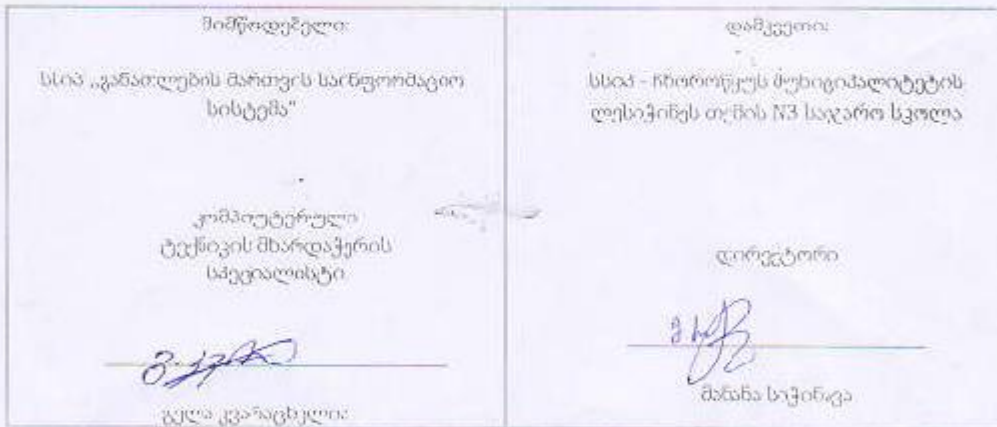 მიმწოდებელი:
სსიპ „განათლების მართვის საინფორმაციო
სისტემა"
კომპიუტერული
ტექნიკის მხარდაჭერის
სპეციალისტი
გელა კვარაცხელია
დამკვეთი:
სსიპ - ჩხოროწყუს მუნიციპალიტეტის
ლესიჭინეს თემის N3 საჯარო სკოლა
დირექტორი
მანანა საჭინავა